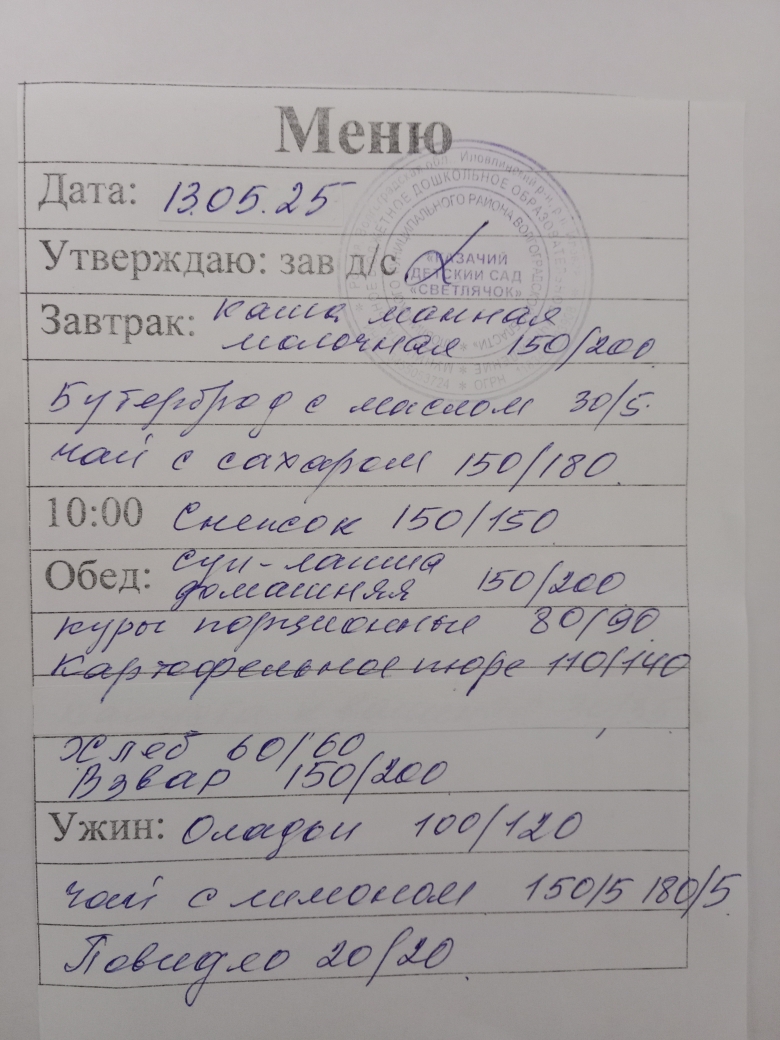 Меню
Дата: 13.05.25
Утверждаю: зав д/с
«КАЗАЧИЙ
ДЕТСКИЙ САД
«СВЕТЛЯЧОК»
Завтрак: каша манная
молочная 150/200
Бутерброд с маслом 30/5.
чай с сахаром 150/180
10:00 Снежок 150/150
Обед: суп-лапша
домашняя 150/200
куры порционные 80/90
Картофельное пюре 110/140
Хлеб 60/60
Взвар 150/200
Ужин: Оладьи 100/120
чай с лимоном 150/5 180/5
Повидло 20/20